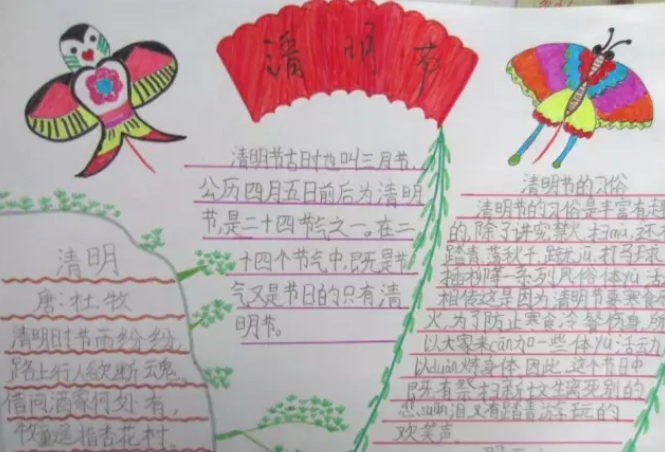 清明节
清明节古时也叫三月节,
公历四月五日前后为清明
节,是二十四节气之一。在二
十四个节气中,既是节
气又是节日的只有清
明节。
清明
唐:杜牧
清明时节雨纷纷,
路上行人欲断魂。
借问酒家何处有,
牧童遥指杏花村。
清明节的习俗
清明节的习俗是丰富有趣
的,除了讲究禁火、扫mù,还有
踏青、荡秋千、踢cù jū、打马球、
插柳等一系列风俗体yù活
相传这是因为清明节要寒食
火,为了防止寒食冷餐伤身,所
以大家来cān加一些体yù活动
以duàn炼身体。因此,这个节日中
既有祭扫新坟生离死别的
悲suān泪,又有踏青游玩的
欢笑声。